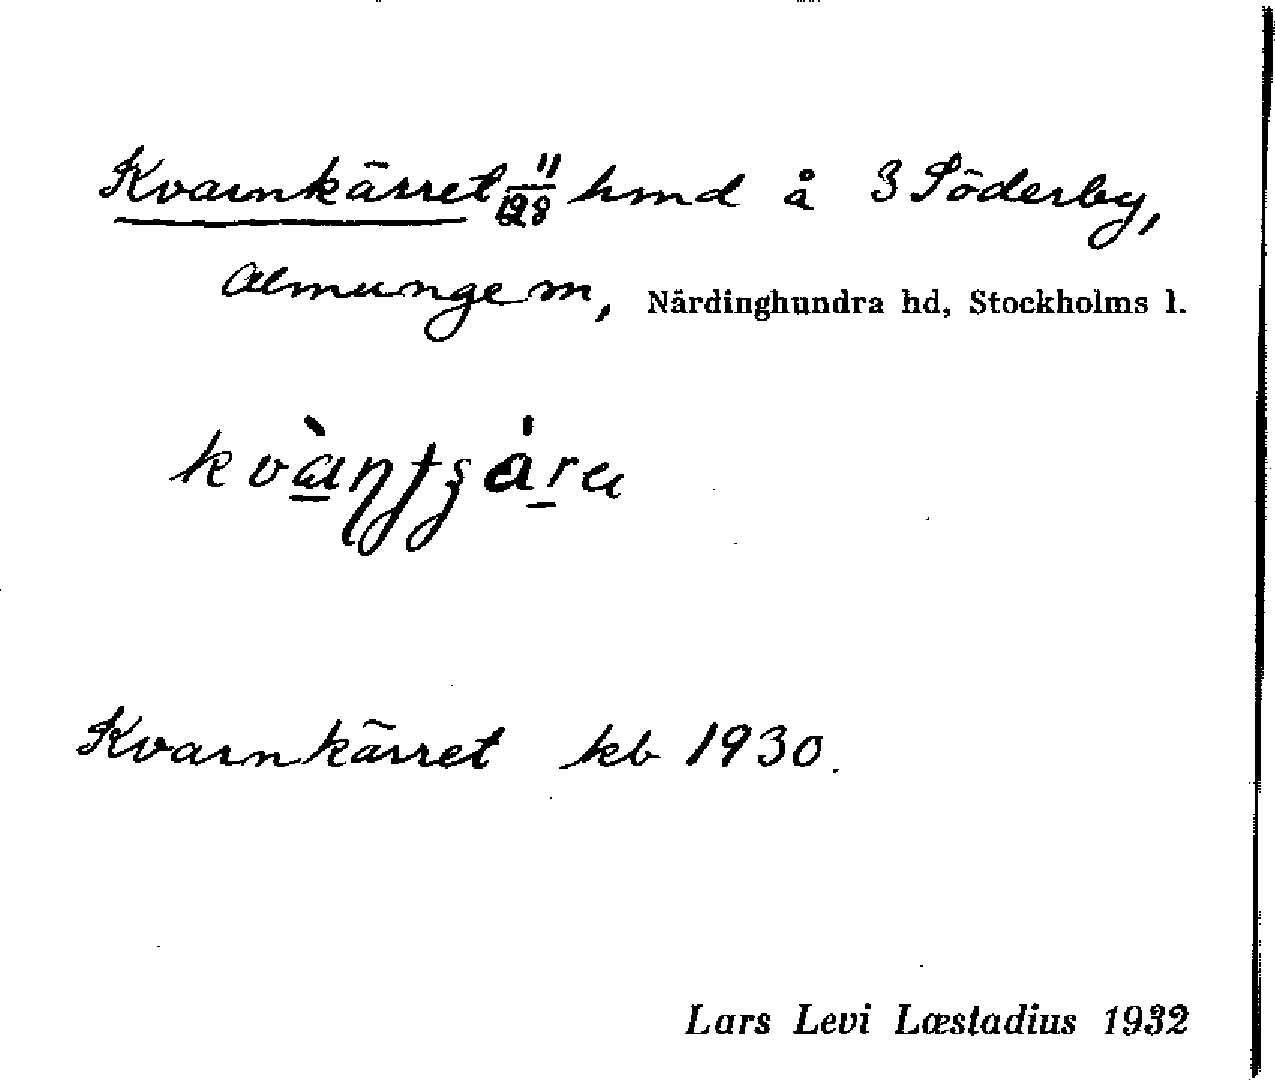 Kvarnkärret 11/128 hmd å 3 Söderby,
Almunge sn, Närdinghundra hd, Stockholms l.
Kvarnkärret kb 1930.
Lars Levi Læstadius 1932